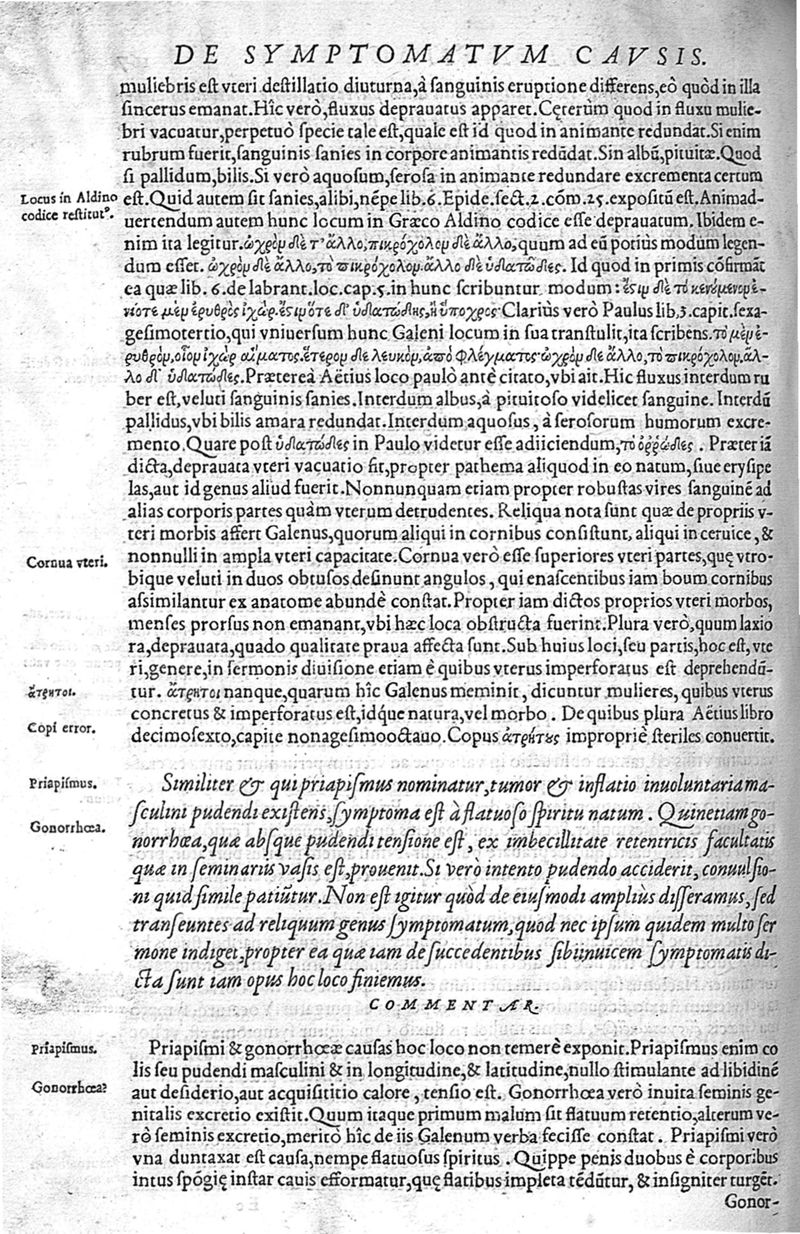 DE SYMPTOMATVM CAVSIS.
muliebris est vteri destillatio diuturna, à sanguinis eruptione differens, eò quòd in illa
sincerus emanat. Hîc verò, fluxus deprauatus apparet. Cęterùm quod in fluxu mulie-
bri vacuatur, perpetuò specie tale est, quale est id quod in animante redundat. Si enim
rubrum fuerit, sanguinis sanies in corpore animantis redūdat. Sin albū, pituitæ. Quod
si pallidum, bilis. Si verò aquosum, serosa in animante redundare excrementa certum
Locus in Aldino
codice restitutꝰ.
est. Quid autem sit sanies, alibi, nēpe lib. 6. Epide. sect. 2. cōm. 25. expositū est. Animad-
uertendum autem hunc locum in Græco Aldino codice esse deprauatum. Ibidem e-
nim ita legitur. ὠχρὸμ δὲ τ' ἄλλο, πικρόχολομ δὲ ἄλλο, quum ad eū potiùs modum legen-
dum esset. ὠχρὸμ δὲ ἄλλο, τὸ πικρόχολομ. ἄλλο δὲ ὑδατῶδες. Id quod in primis cōfirmāt
ea quæ lib. 6. de labrant. loc. cap. 5. in hunc scribuntur modum: ἔστιμ δὲ τὸ κενόμενομ ἐ-
νίοτε μὲμ ἐρυθρὸς ἰχὼρ. ἔστιμ ὅτε δ' ὑδατώδης, ἢ ὕπωχρος. Clariùs verò Paulus lib. 3. capit. sexa-
gesimotertio, qui vniuersum hunc Galeni locum in sua transtulit, ita scribens. τὸ μὲμ ἐ-
ρυθρὸμ, οἷομ ἰχὼρ αἵματος. ἕτερομ δὲ λευκὸμ, ἀπὸ φλέγματος· ὠχρὸμ δὲ ἄλλο, τὸ πικρόχολομ, ἄλ-
λο δ' ὑδατῶδες. Prætereà Aëtius loco paulò antè citato, vbi ait. Hic fluxus interdum ru
ber est, veluti sanguinis sanies. Interdum albus, à pituitoso videlicet sanguine. Interdū
pallidus, vbi bilis amara redundat. Interdum aquosus, à serosorum humorum excre-
mento. Quare post ὑδατῶδες in Paulo videtur esse adiiciendum, τὸ ὀῤῥῶδες. Præter iā
dicta, deprauata vteri vacuatio fit, propter pathema aliquod in eo natum, siue erysipe
las, aut id genus aliud fuerit. Nonnunquam etiam propter robustas vires sanguinē ad
alias corporis partes quàm vterum detrudentes. Reliqua nota sunt quæ de propriis v-
teri morbis affert Galenus, quorum aliqui in cornibus consistunt, aliqui in ceruice, &
Cornua vteri.
nonnulli in ampla vteri capacitate. Cornua verò esse superiores vteri partes, quę vtro-
bique veluti in duos obtusos desinunt angulos, qui enascentibus iam boum cornibus
assimilantur ex anatome abundè constat. Propter iam dictos proprios vteri morbos,
menses prorsus non emanant, vbi hæc loca obstructa fuerint. Plura verò, quum laxio
ra, deprauata, quādo qualitate praua affecta sunt. Sub huius loci, seu partis, hoc est, vte
ri, genere, in sermonis diuisione etiam è quibus vterus imperforatus est deprehendū-
ἄτρητοι.
tur. ἄτρητοι nanque, quarum hîc Galenus meminit, dicuntur mulieres, quibus vterus
concretus & imperforatus est, idque natura, vel morbo. De quibus plura Aëtius libro
Copi error.
decimosexto, capite nonagesimooctauo. Copus ἀτρήτους impropriè steriles conuertit.
Priapismus.
Similiter & qui priapismus nominatur, tumor & inflatio inuoluntaria ma-
sculini pudendi existens, symptoma est à flatuoso spiritu natum. Quinetiam go-
Gonorrhœa.
norrhœa, quæ absque pudendi tensione est, ex imbecillitate retentricis facultatis
quæ in seminariis vasis est, prouenit. Si verò intento pudendo acciderit, conuulsio-
ni quid simile patiūtur. Non est igitur quòd de eiusmodi ampliùs disseramus, sed
transeuntes ad reliquum genus symptomatum, quod nec ipsum quidem multo ser
mone indiget, propter ea quæ iam de succedentibus sibiinuicem symptomatis di-
cta sunt iam opus hoc loco finiemus.
COMMENTAR.
Priapismus.
Priapismi & gonorrhœæ causas hoc loco non temerè exponit. Priapismus enim co
lis seu pudendi masculini & in longitudine, & latitudine, nullo stimulante ad libidinē
Gonorrhœa?
aut desiderio, aut acquisititio calore, tensio est. Gonorrhœa verò inuita seminis ge-
nitalis excretio existit. Quum itaque primum malum sit flatuum retentio, alterum ve-
rò seminis excretio, meritò hîc de iis Galenum verba fecisse constat. Priapismi verò
vna duntaxat est causa, nempe flatuosus spiritus. Quippe penis duobus è corporibus
intus spōgię instar cauis efformatur, quę flatibus impleta tēdūtur, & insigniter turgēt.
Gonor-